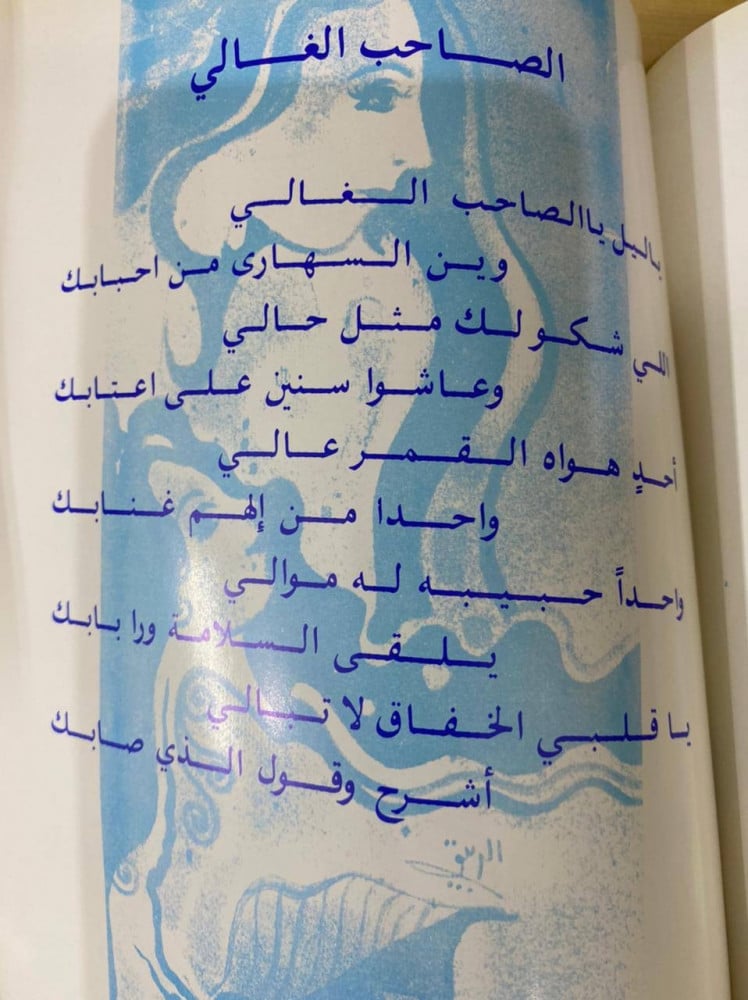 الصاحب الغالي
ياليل ياالصاحب الغالي
وين السهارى من احبابك
اللي شكولك مثل حالي
وعاشوا سنين على اعتابك
أحدٍ هواه القمر عالي
واحدا من إلهم غنابك
واحداً حبيبه له موالي
يلقى السلامة ورا بابك
يا قلبي الخفاق لا تبالي
أشرح وقول الذي صابك